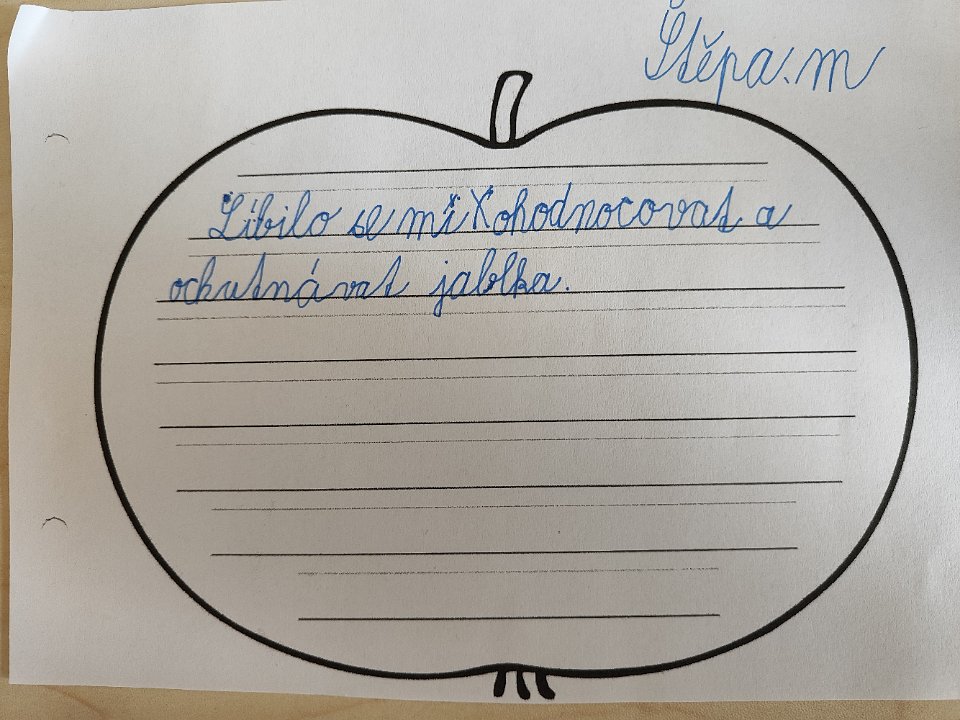 Štěpa.m
Líbilo se mi ohodnocovat a
ochutnávat jablka.